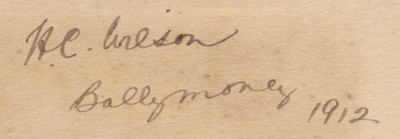 H.C. Wilson
Ballymoney 1912